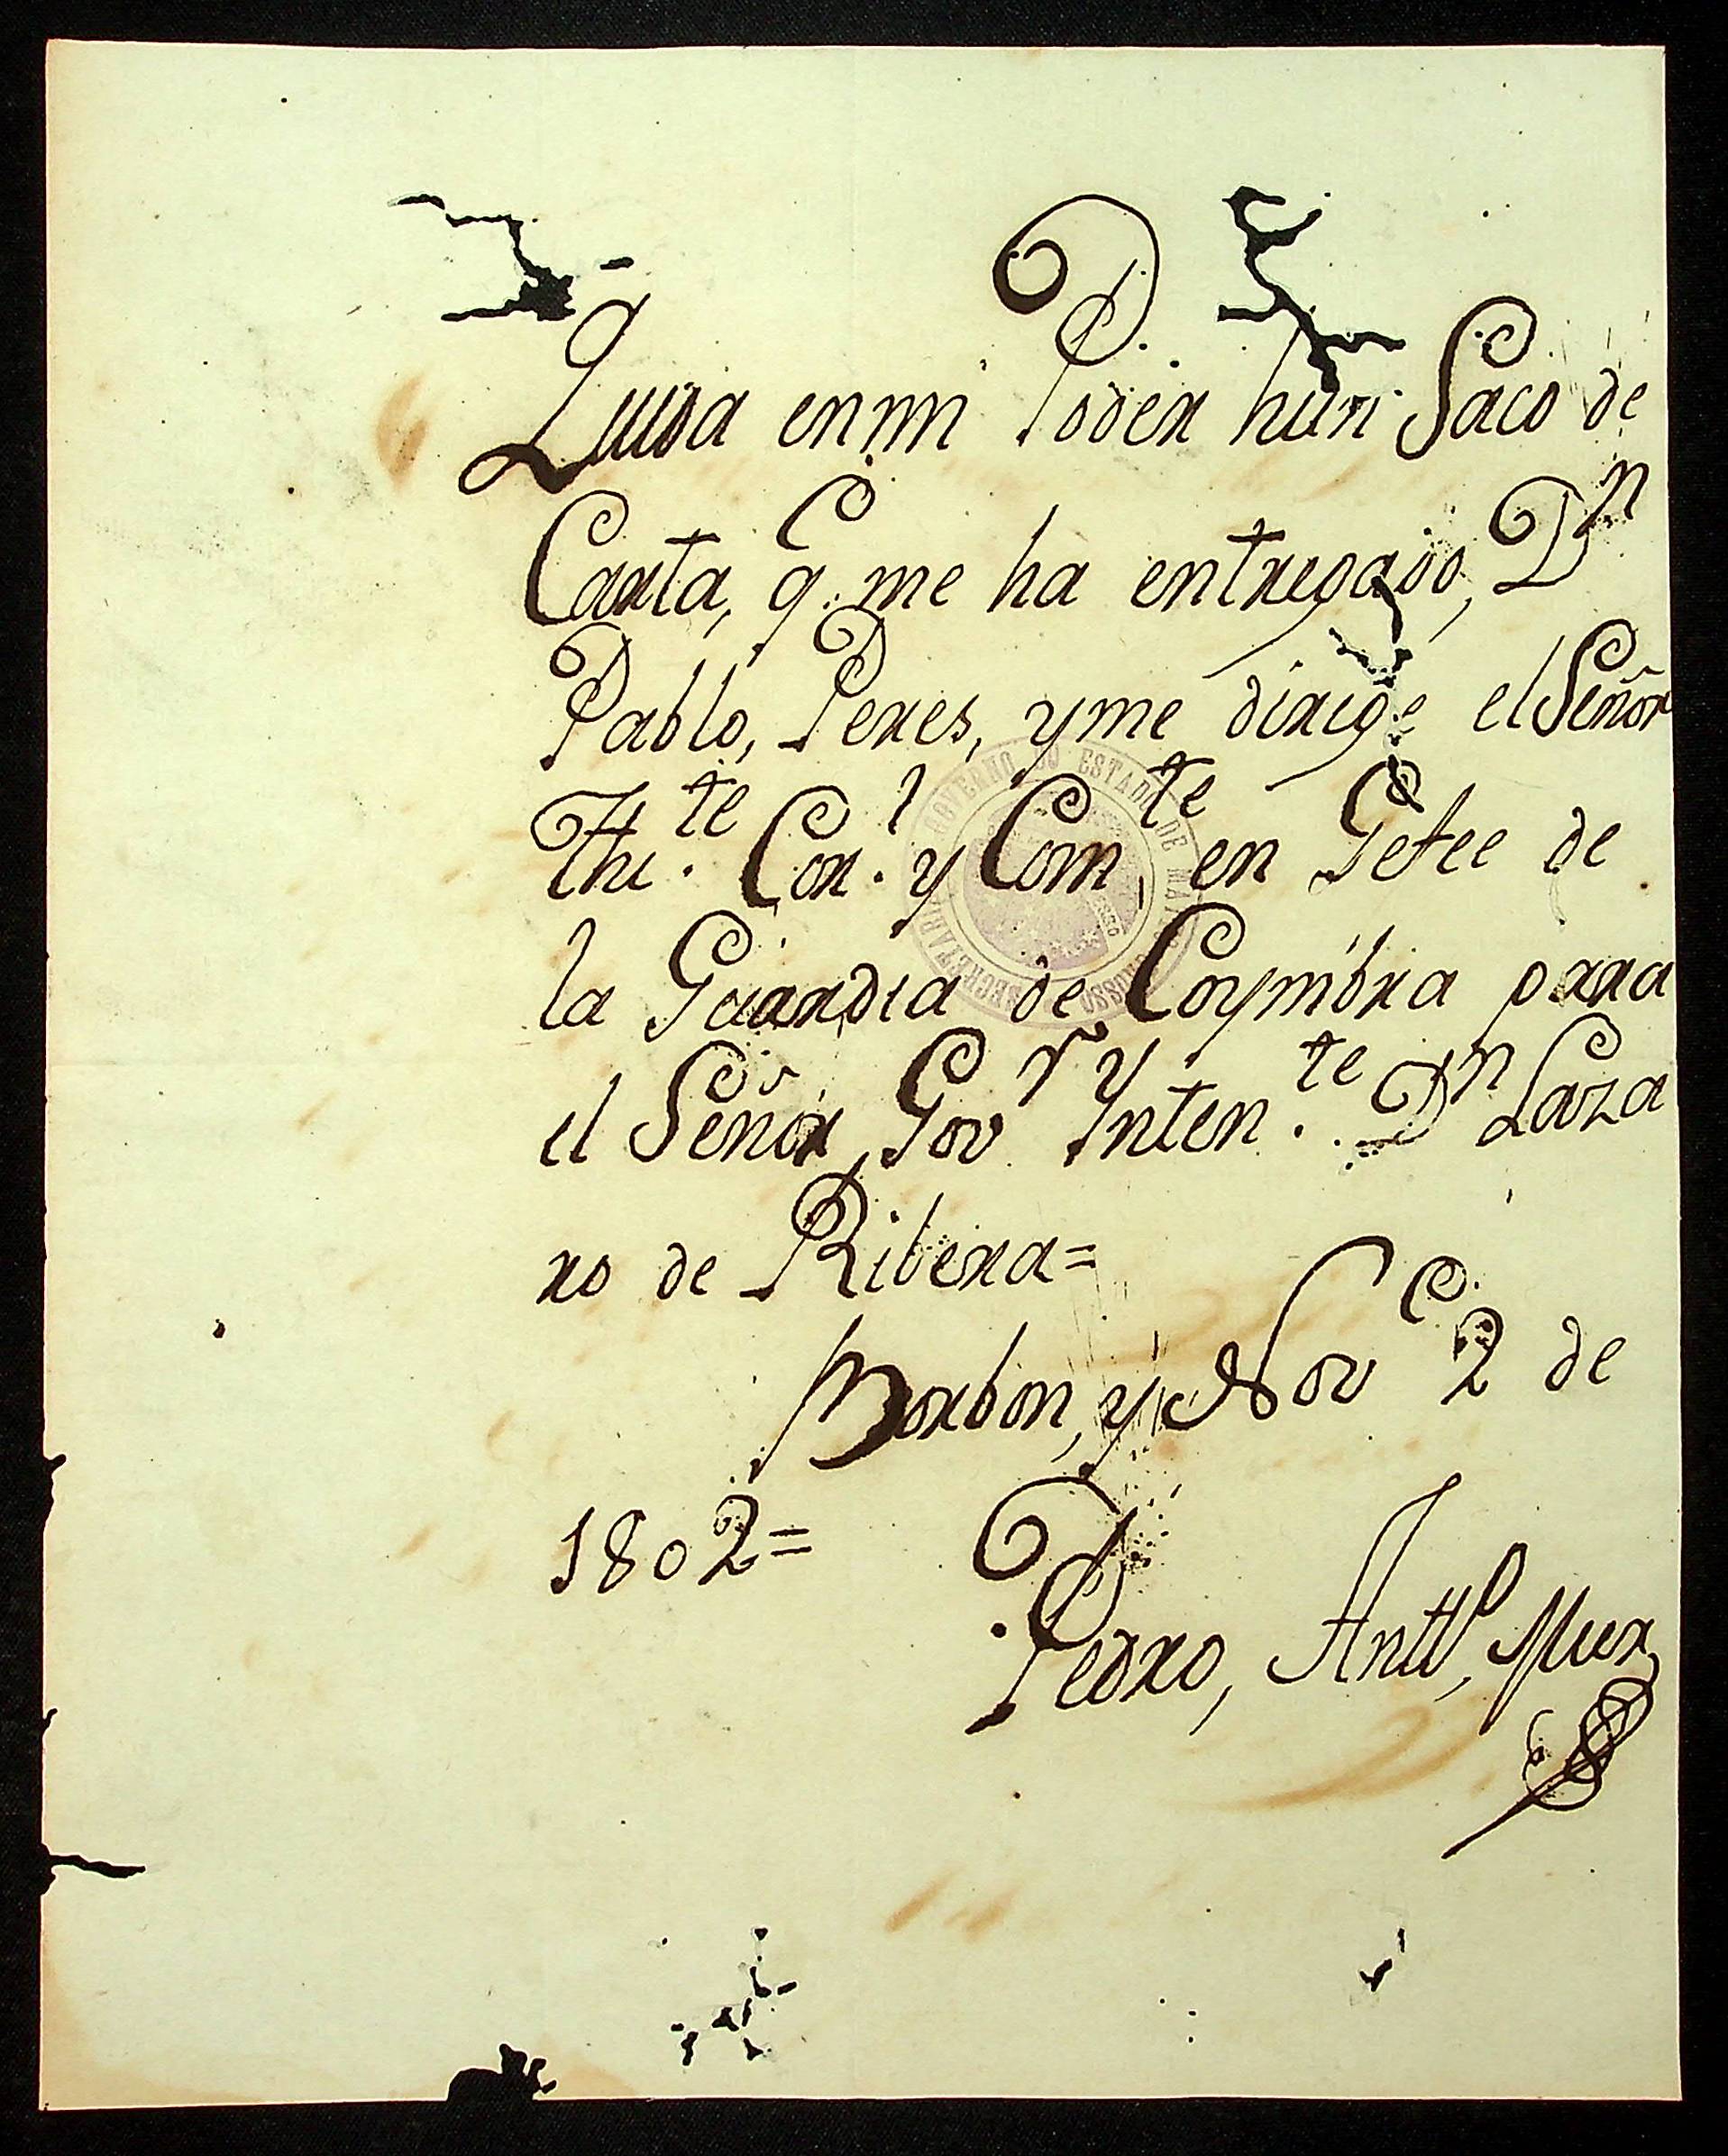 Queda en mi Poder hun Saco de
Carta, q.e me ha entregado, Dn
Pablo, Peres, y me dirige el Señor
Thi.te Cor.l y Comte en Gefee de
la Guardia de Coymbra para
el Señor, Govr y Inten.te Dn Laza
ro de Ribera=
Borbon, y Nove 2 de
1802=
Pedro, Antto, Mier
GOVERNO DO ESTADO DE MATTO GROSSO SECRETARIA